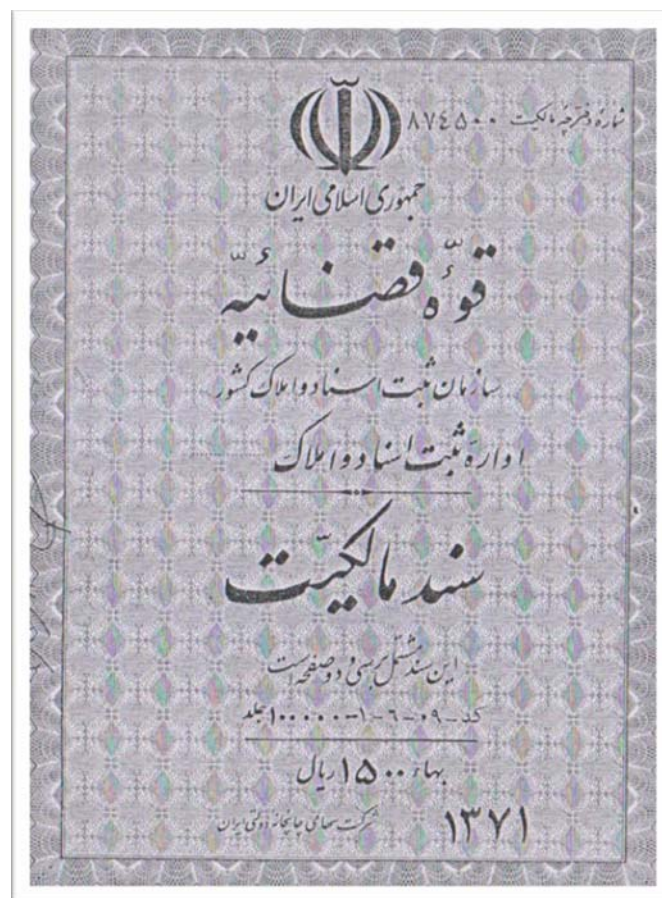 شمارهٔ دفترچهٔ مالکیت ۸۷۴۵۰۰
جمهوری اسلامی ایران
قوّهٔ قضائیّه
سازمان ثبت اسناد و املاک کشور
ادارهٔ ثبت اسناد و املاک ............
سند مالکیّت
این سند مشتمل بر سی و دو صفحه است
کد-۰۹-۶-۱-۱۰۰۰۰۰ جلد
بهاء ۱۵۰۰ ریال
شرکت سهامی چاپخانه دولتی ایران ۱۳۷۱